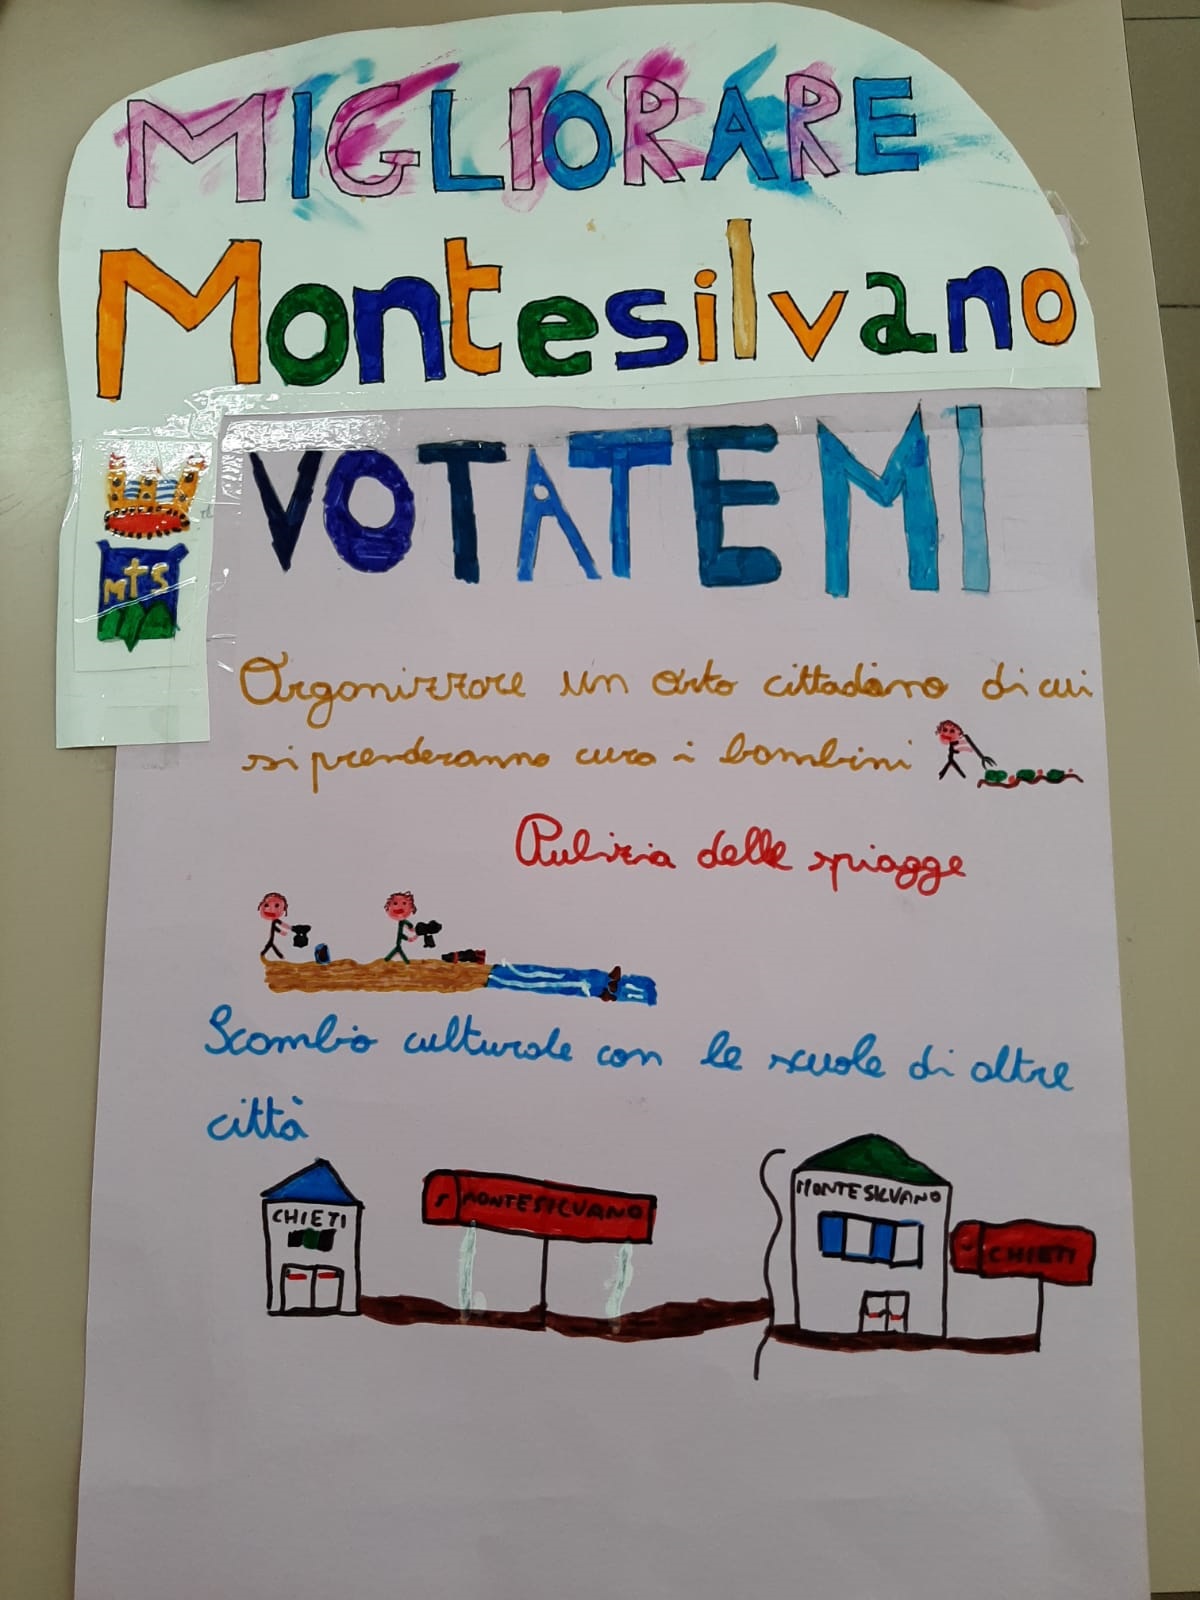 MIGLIORARE
Montesilvano
VOTATEMI
MTS
Organizzare un orto cittadino di cui
si prenderanno cura i bambini
Pulizia delle spiagge
Scambio culturale con le scuole di altre
città
CHIETI
S MONTESILVANO
MONTESILVANO
CHIETI